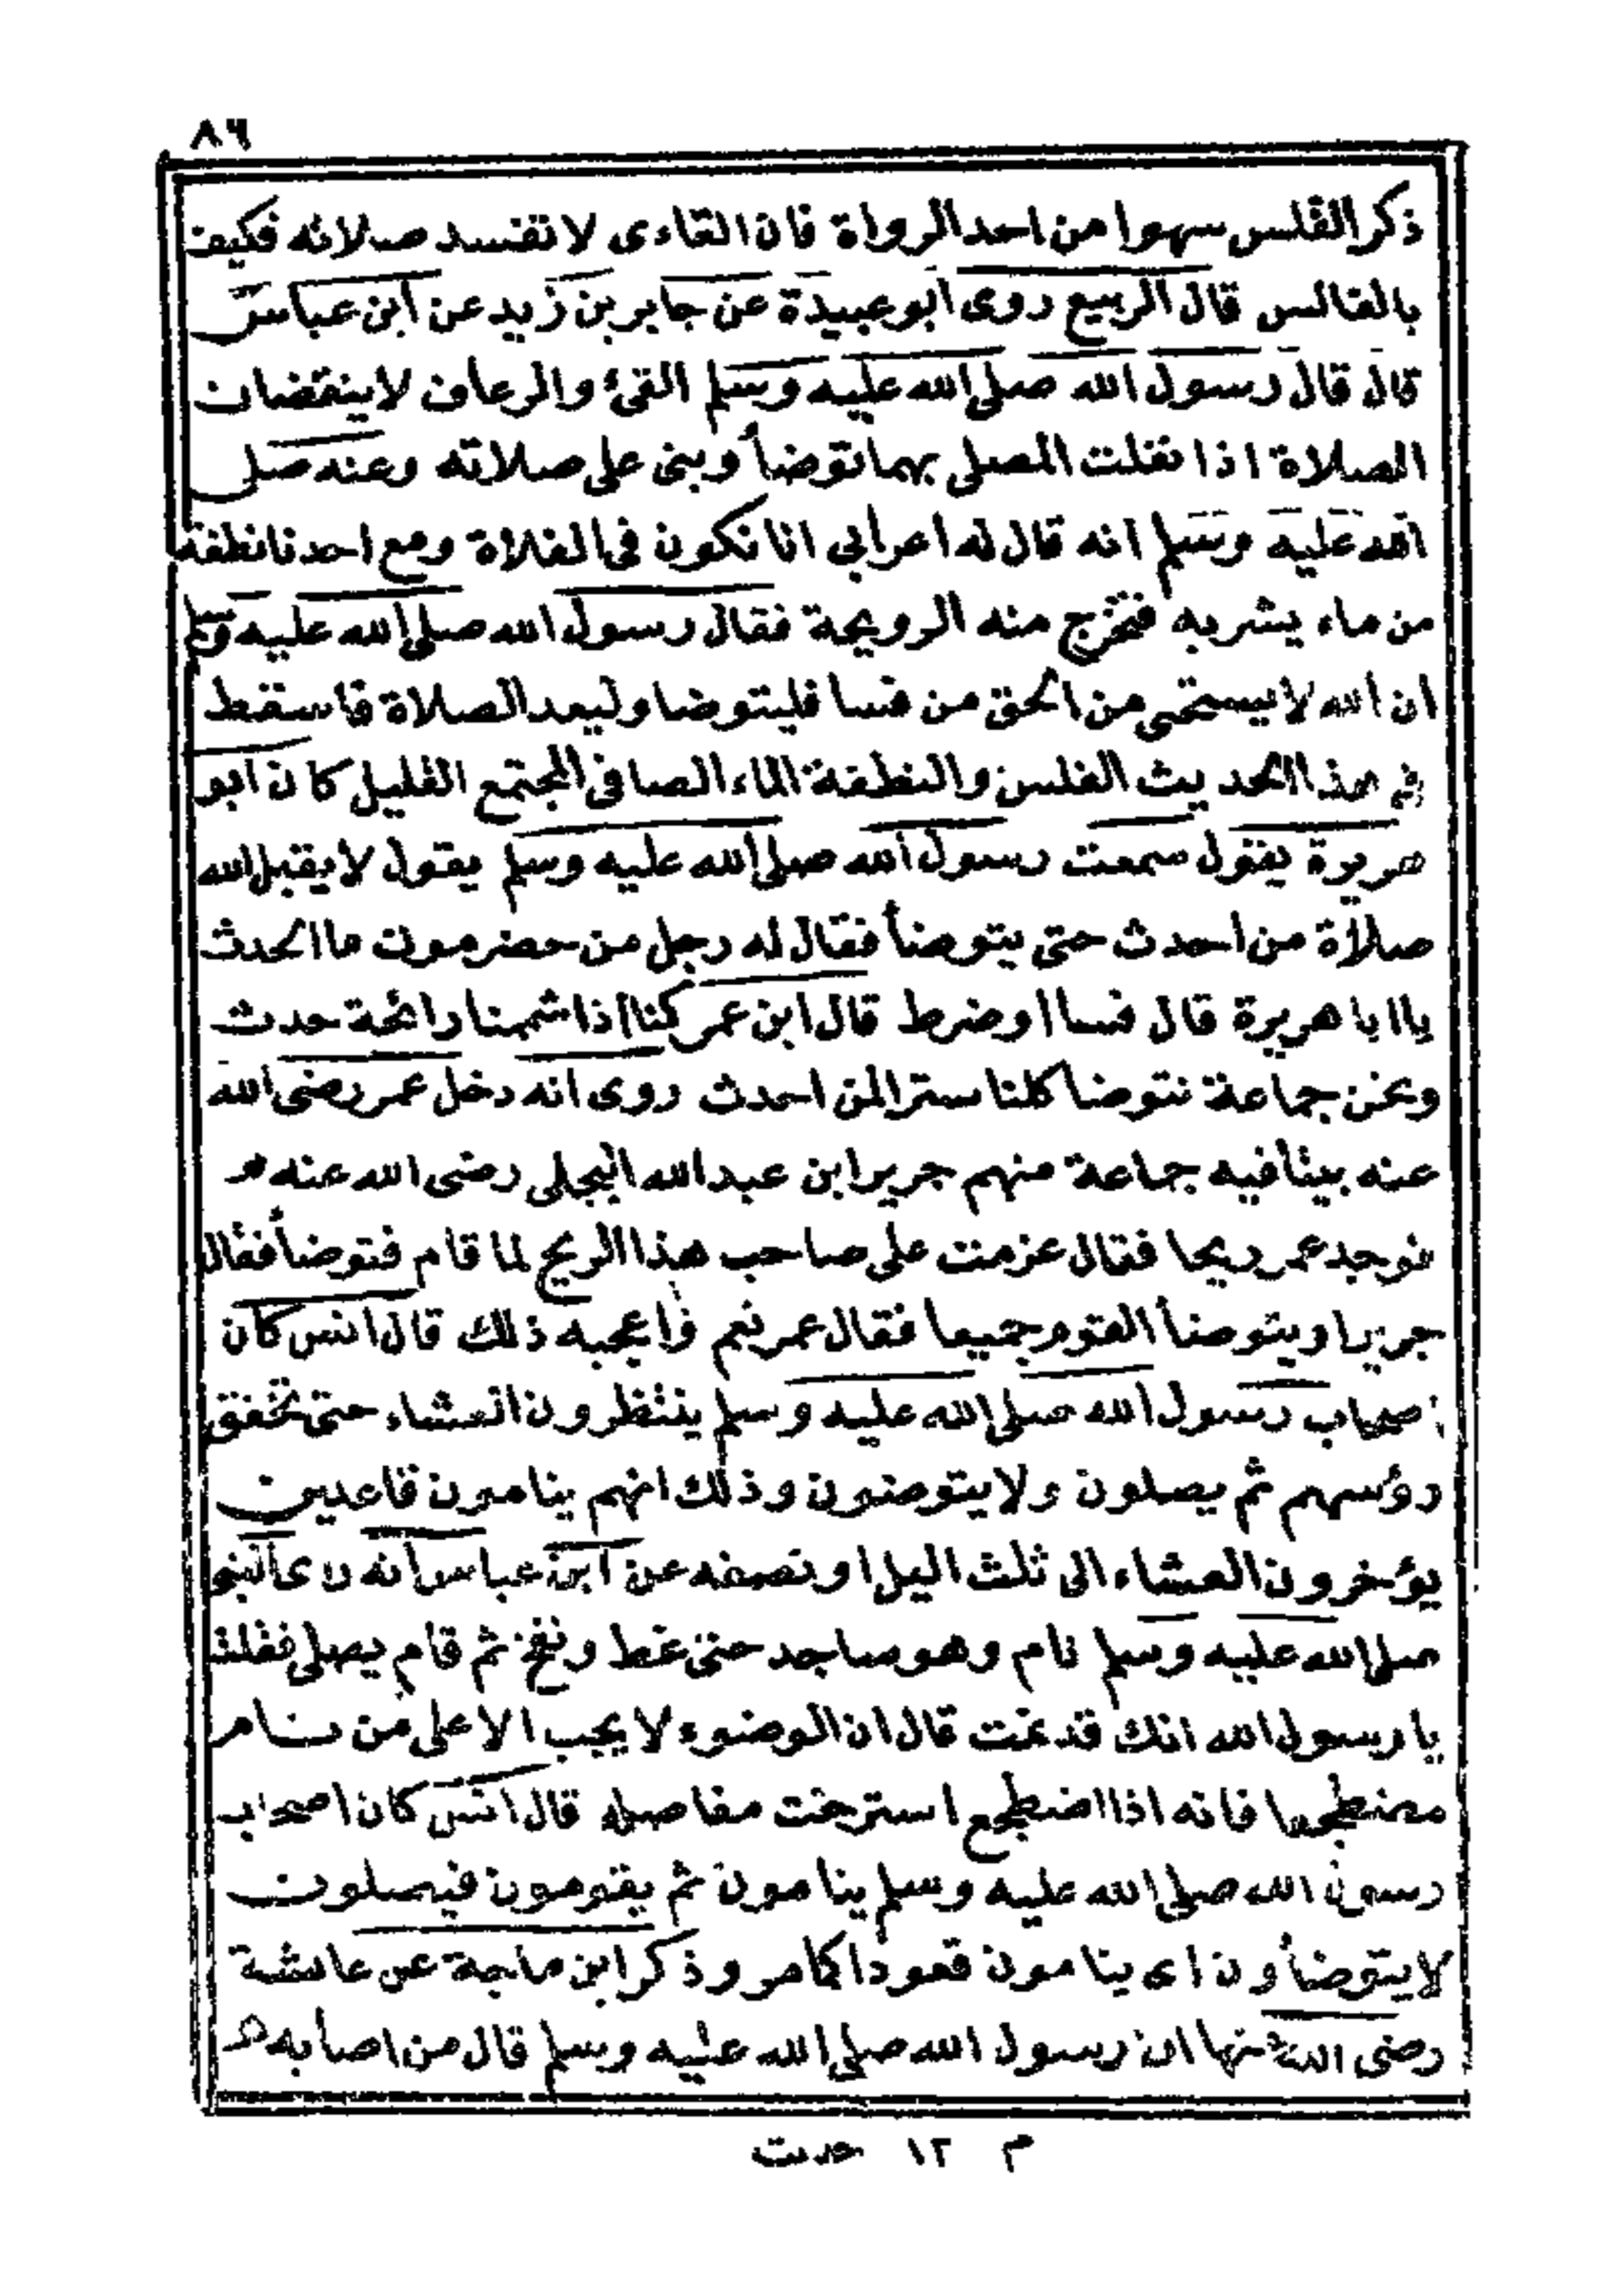 ٨٩
ذكر القلس سهوا من احد الرواة فان القاءى لا تفسد صلاته فكيف
بالقالس قال الربيع روى ابو عبيدة عن جابر بن زيد عن ابن عباس
قال قال رسول الله صلى الله عليه وسلم القئ والرعاف لا ينقضان
الصلاة اذا نفلت المصلى بهما توضأ وبنى على صلاته وعنه صلى
الله عليه وسلم انه قال له اعرابي انا نكون فى الفلاة ومع احدنا نطفة
من ماء يشربه فتخرج منه الرويحة فقال رسول الله صلى الله عليه وسلم
ان الله لا يستحى من الحق من فسا فليتوضا وليعد الصلاة فاسقط
فى هذا الحديث القلس والنطفة الماء الصافى المجتمع القليل كان ابو
هريرة يقول سمعت رسول الله صلى الله عليه وسلم يقول لا يقبل الله
صلاة من احدث حتى يتوضأ فقال له رجل من حضرموت ما الحدث
يا ابا هريرة قال فسا او ضرط قال ابن عمر كنا اذا شممنا رائحة حدث
ونحن جماعة نتوضا كلنا سترا لمن احدث روى انه دخل عمر رضى الله
عنه بيتا فيه جماعة منهم جرير ابن عبد الله البجلى رضى الله عنه
فوجد عمر ريحا فقال عزمت على صاحب هذا الريح لما قام فتوضأ فقال
جرير او يتوضأ القوم جميعا فقال عمر نعم فاعجبه ذلك قال انس كان
اصحاب رسول الله صلى الله عليه وسلم ينتظرون العشاء حتى تخفق
رؤسهم ثم يصلون ولا يتوضئون وذلك انهم ينامون قاعدين
يؤخرون العشاء الى ثلث اليل او نصفه عن ابن عباس انه راى النبى
صلى الله عليه وسلم نام وهو ساجد حتى غط ونفخ ثم قام يصلى فقلت
يا رسول الله انك قد نمت قال ان الوضوء لا يجب الا على من نام
مضطجعا فانه اذا اضطجع استرخت مفاصله قال انس كان اصحاب
رسول الله صلى الله عليه وسلم ينامون ثم يقومون فيصلون
لا يتوضأون اى ينامون قعودا كما مر وذكر ابن ماجة عن عائشة
رضى الله عنها ان رسول الله صلى الله عليه وسلم قال من اصابه
م ١٢ حدث